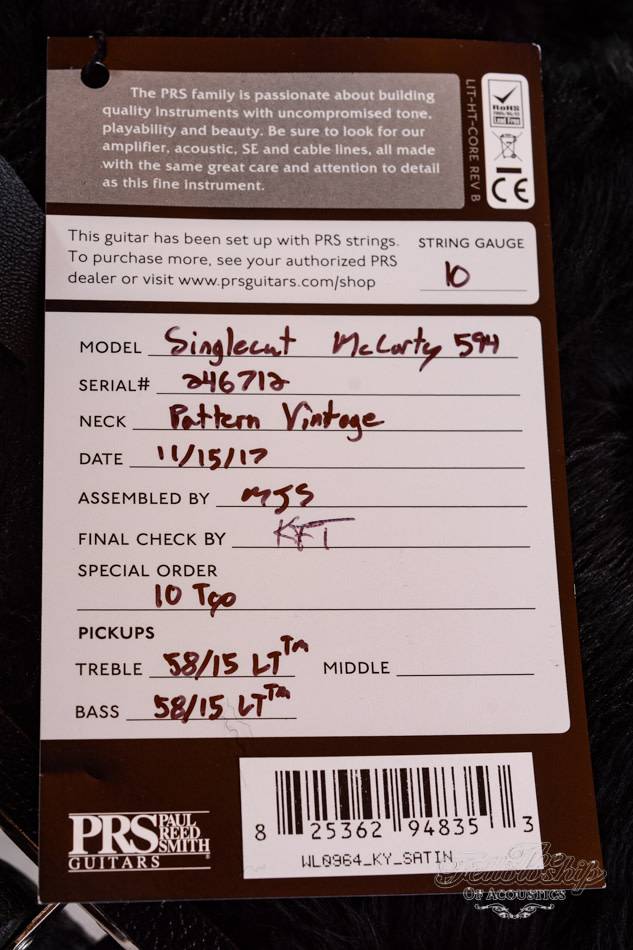 The PRS family is passionate about building
quality instruments with uncompromised tone,
playability and beauty. Be sure to look for our
amplifier, acoustic, SE and cable lines, all made
with the same great care and attention to detail
as this fine instrument.
LIT-HT-CORE REV B
RoHS
Lead Free
CE
This guitar has been set up with PRS strings.
To purchase more, see your authorized PRS
dealer or visit www.prsguitars.com/shop
STRING GAUGE
10
MODEL Singlecut McCarty 594
SERIAL# 246712
NECK Pattern Vintage
DATE 11/15/17
ASSEMBLED BY MJS
FINAL CHECK BY KFT
SPECIAL ORDER
10 Top
PICKUPS
TREBLE 58/15 LT™ MIDDLE
BASS 58/15 LT™
PRS PAUL REED SMITH
GUITARS
8 25362 94835 3
WL0964_KY_SATIN
The Fellowship
OF ACOUSTICS